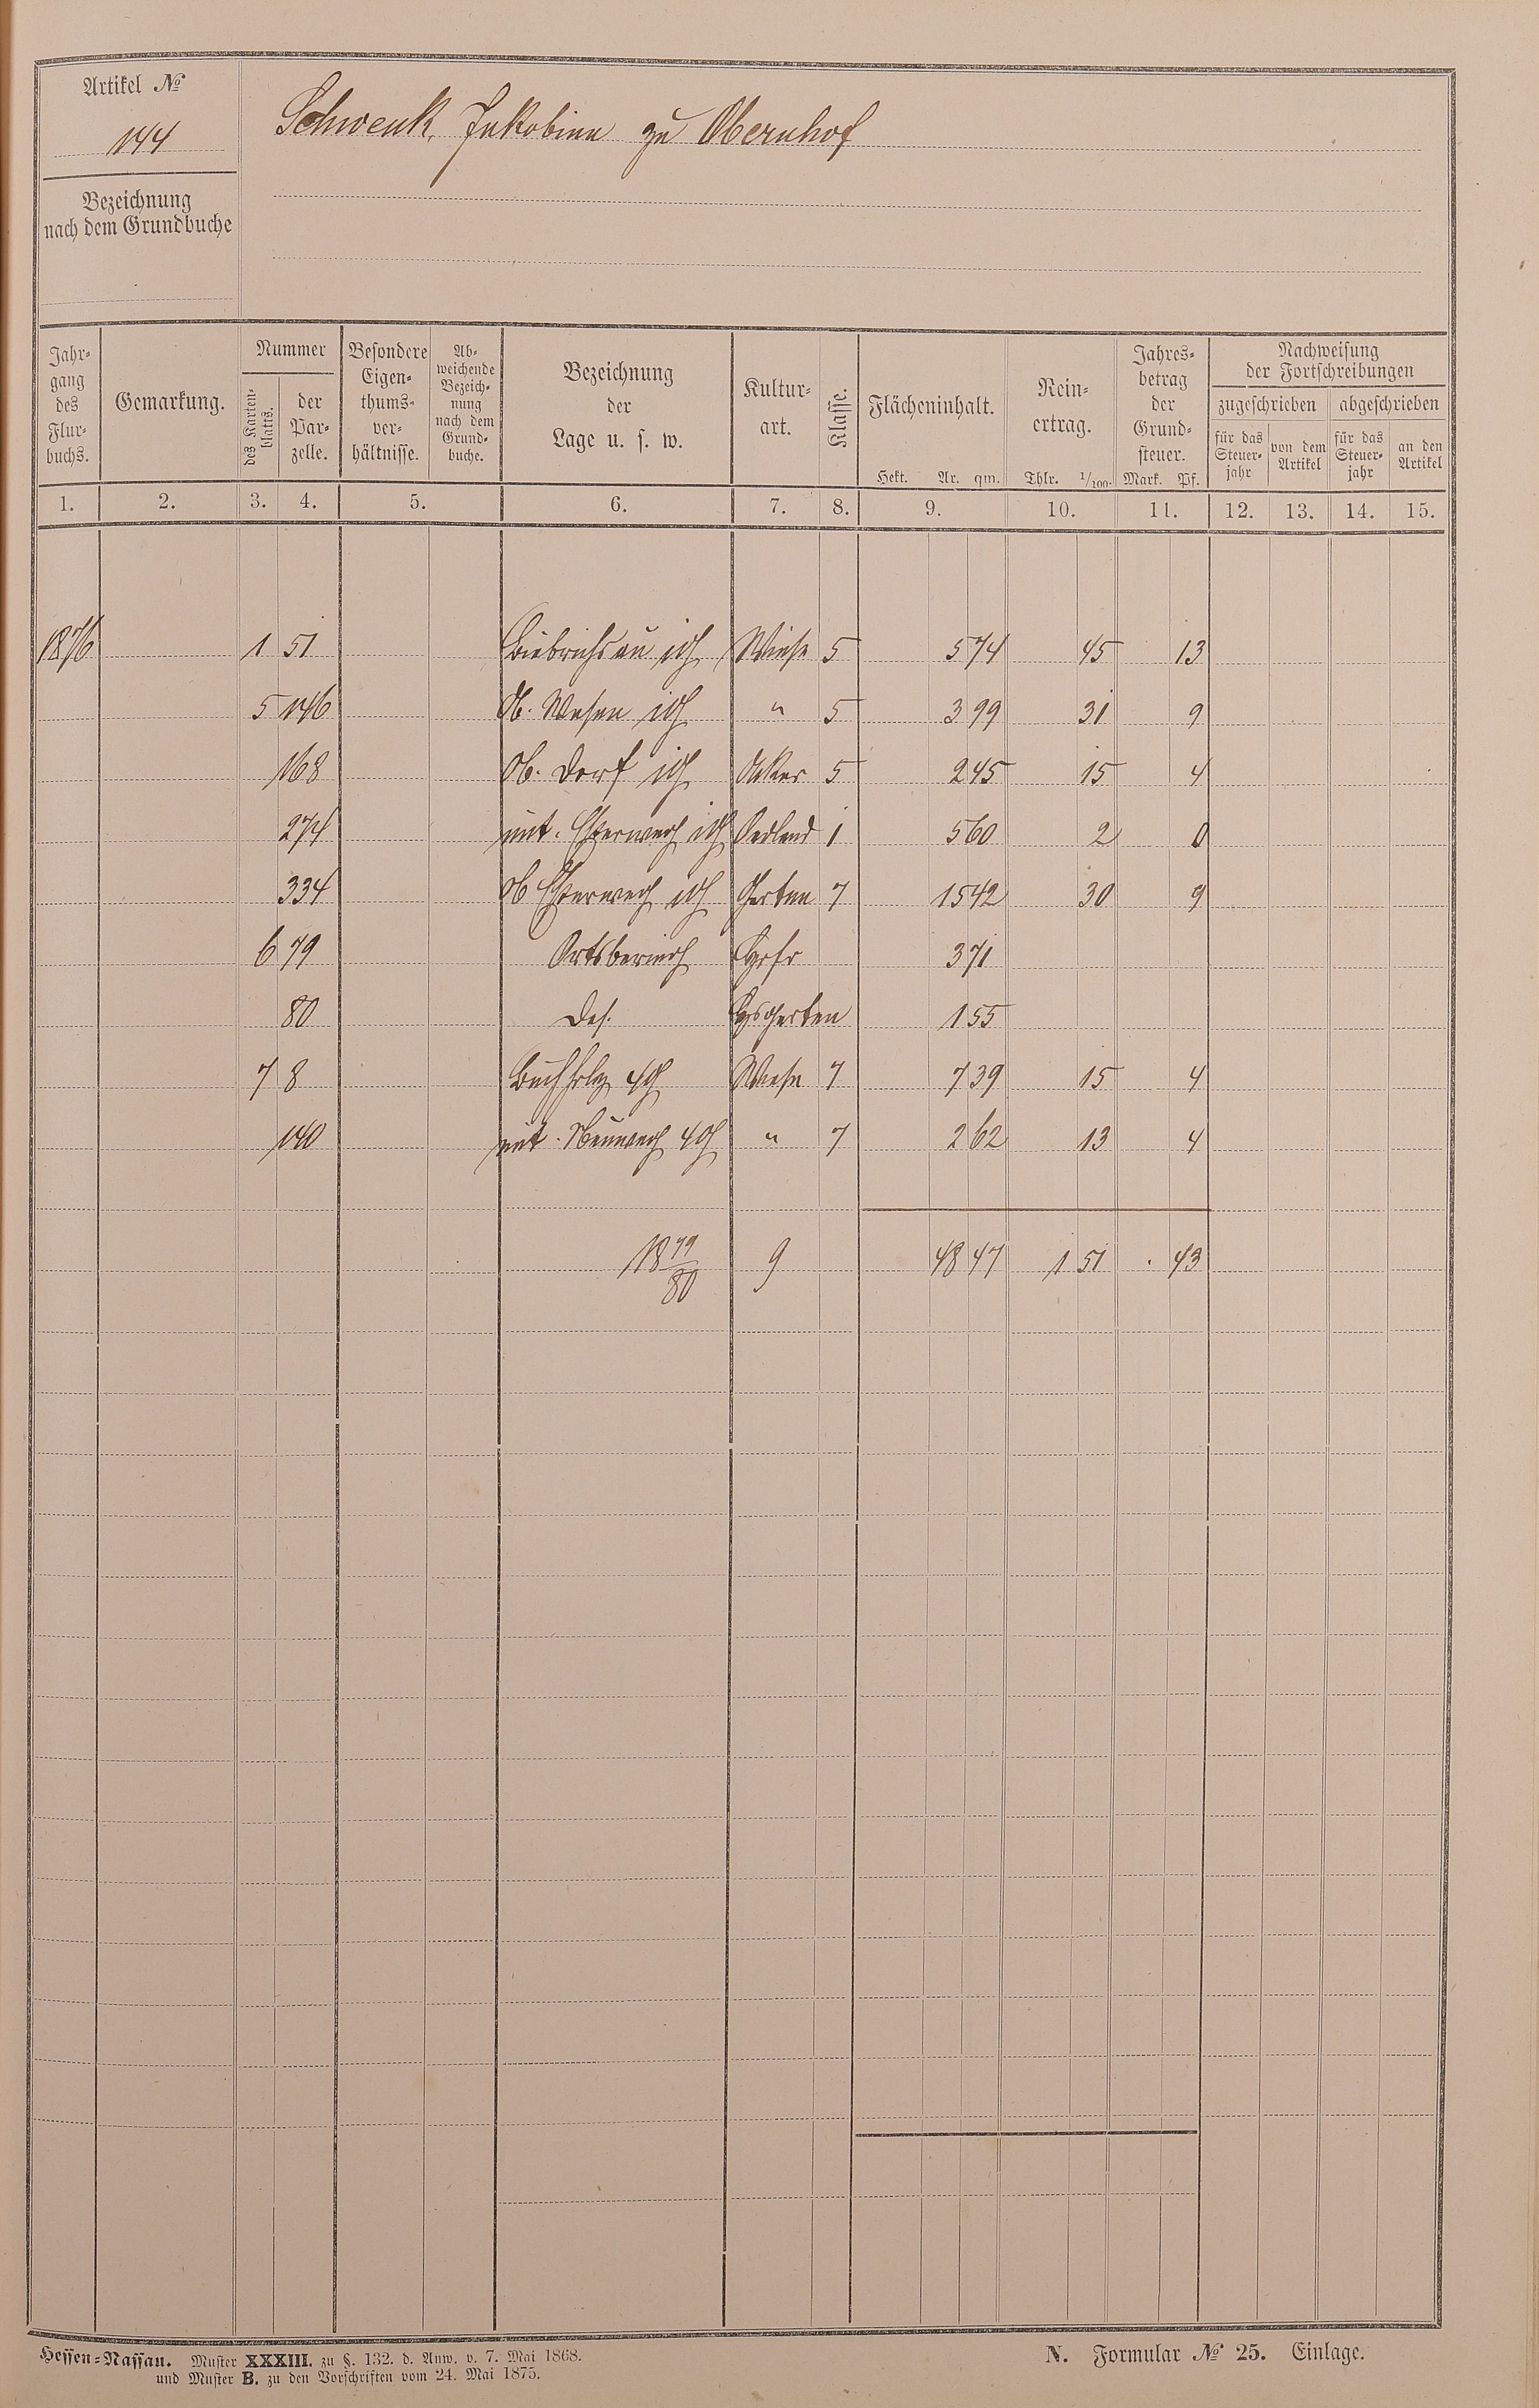 Artikel №
144
Schwenk, Jakobine zu Obernhof
Bezeichnung
nach dem Grundbuche
Jahrgang des Flurbuchs. Gemarkung. Nummer des Kartenblatts. der Parzelle. Besondere Eigenthumsverhältnisse. Abweichende Bezeichnung nach dem Grundbuche. Bezeichnung der Lage u. s. w. Kulturart. Klasse. Flächeninhalt. Hekt. Ar. qm. Reinertrag. Thlr. 1/100. Jahresbetrag der Grundsteuer. Mark. Pf. Nachweisung der Fortschreibungen zugeschrieben für das Steuerjahr von dem Artikel abgeschrieben für das Steuerjahr an den Artikel
1. 2. 3. 4. 5. 6. 7. 8. 9. 10. 11. 12. 13. 14. 15.
1876 1 51 Wiese 5 5 74 45 13
5 146 Ob. 5 3 99 31 9
168 Ob. Dorf Acker 5 2 45 15 4
274 unt. Oedland 1 5 60 2 0
334 Ob Garten 7 15 42 30 9
6 79 Ortsberingh 3 71
80 Das. Hsgarten 1 55
7 8 Buchholz Wiese 7 7 39 15 4
140 unt. " 7 2 62 13 4
1879/80 9 48 47 1 51 . 43
Hessen-Nassau. Muster XXXIII. zu §. 132. d. Anw. v. 7. Mai 1868.
und Muster B. zu den Vorschriften vom 24. Mai 1875.
N. Formular № 25. Einlage.